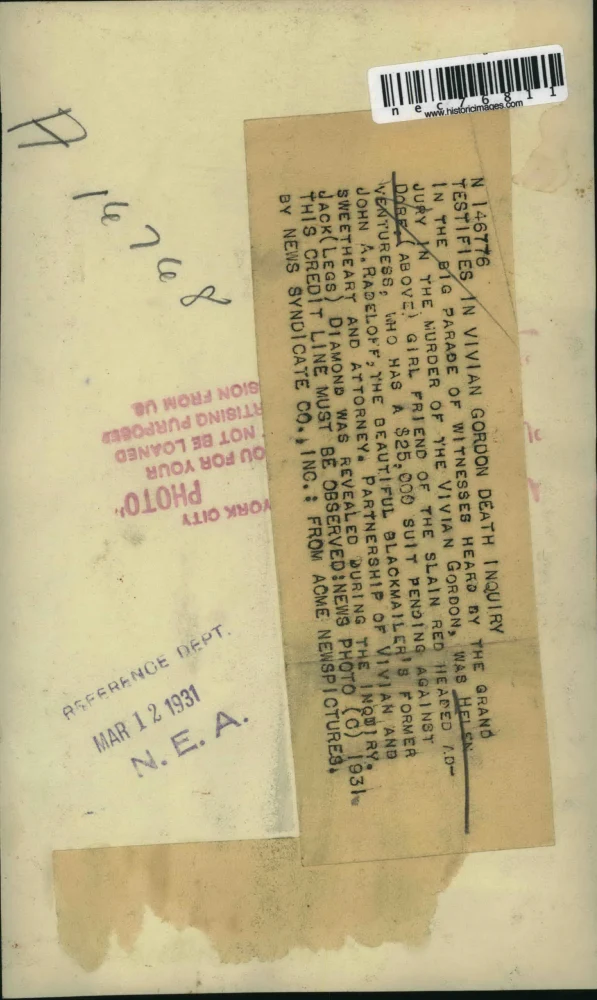 nec76811
www.historicimages.com
N 146776
TESTIFIES IN VIVIAN GORDON DEATH INQUIRY
IN THE BIG PARADE OF WITNESSES HEARD BY THE GRAND
JURY IN THE MURDER OF THE VIVIAN GORDON, WAS HELEN
DORF (ABOVE) GIRL FRIEND OF THE SLAIN RED HEADED AD-
VENTURESS, WHO HAS A $25,000 SUIT PENDING AGAINST
JOHN A. RADELOFF, THE BEAUTIFUL BLACKMAILER'S FORMER
SWEETHEART AND ATTORNEY. PARTNERSHIP OF VIVIAN AND
JACK(LEGS) DIAMOND WAS REVEALED DURING THE INQUIRY.
THIS CREDIT LINE MUST BE OBSERVED:NEWS PHOTO (C) 1931
BY NEWS SYNDICATE CO., INC.: FROM ACME NEWSPICTURES.
A
14768
YORK CITY
PHOTO
OU FOR YOUR
NOT BE LOANED
RTISING PURPOSES
SION FROM US
REFERENCE DEPT.
MAR 12 1931
N. E. A.